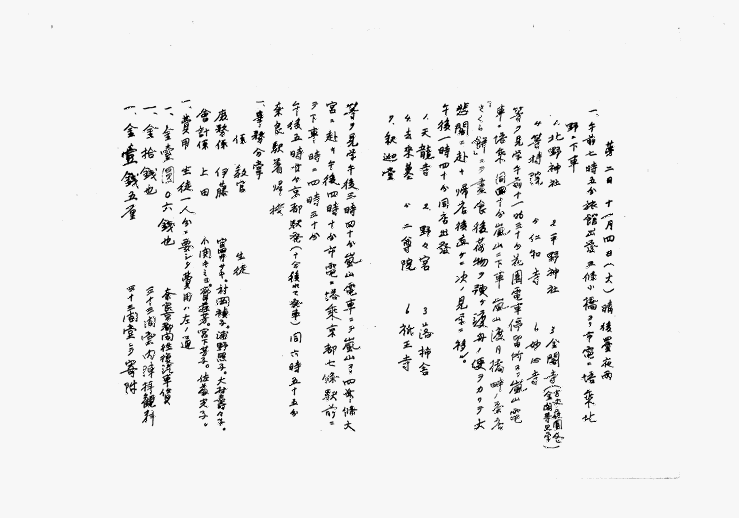 第二日 十一月四日(火) 晴後曇夜雨
一、午前七時五分旅館出発三條小橋ヨリ市電ニ搭乗北
野ニ下車
1.北野神社 2.平野神社 3.金閣寺
4.等持院 5.仁和寺 6.妙心寺
等ヲ見学午前十一時三十分花園電車停留所ヨリ嵐山電
車ニ搭乗 同四十分嵐山ニ下車 嵐山渡月橋畔ノ茶店
さくら餅ニテ昼食後荷物ヲ預ケ渡舟ノ便ヲカリテ大
悲閣ニ赴キ帰店後直チニ次ノ見学ニ移ル
午後一時四十分同店出発
1.天龍寺 2.野々宮 3.落柿舎
4.去来墓 5.二尊院 6.祇王寺
7.釈迦堂
等ヲ見学午後三時四十分嵐山電車ニテ嵐山ヨリ四條大
宮ニ赴キ午後四時十分市電ニ搭乗京都七條駅前ニ
テ下車時ニ四時三十分
午後五時廿分京都駅発(十分後れて発車)同六時五十五分
奈良駅着帰校
一、事務分掌
係 教官 生徒
庶務係 伊藤
会計係 上田
一、費用 生徒一人分ニ要シタ費用ハ左ノ通
一、金壹圓〇六銭也 奈良京都間往復汽車賃
一、金拾銭也 三十三間堂内陣拝観料
一、金壹銭五厘 三十三間堂ヘ寄附